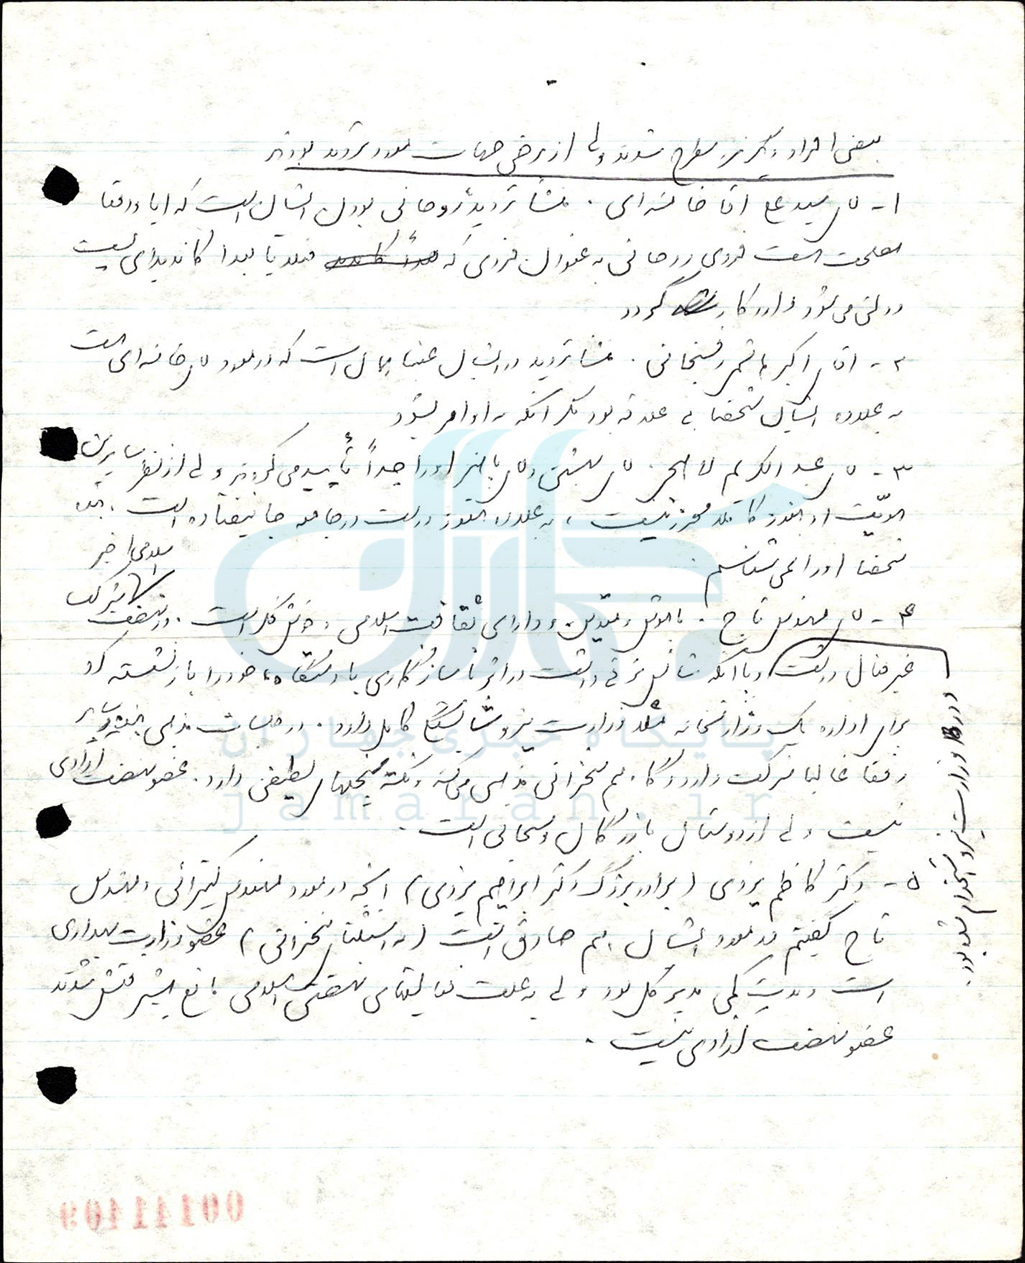 بعضی افراد دیگر نیز مطرح شدند ولی از برخی جهات مورد تردید بودند
۱- آقای سید علی آقا خامنه‌ای . منشأ تردید روحانی بودن ایشان است که آیا واقعا
مصلحت است فردی روحانی به عنوان فردی که بعدا کاندیدای پست
دولتی می‌شود وارد کار گردد
۲- آقای اکبر هاشمی رفسنجانی . منشأ تردید در ایشان عینا همان است که در مورد آقای خامنه‌ای است
به علاوه ایشان شخصا بی علاقه بود مگر آنکه به او امر بشود
۳- آقای عبدالکریم لاهیجی . آقای بهشتی و آقای باهنر او را جداً تأیید می‌کردند ولی از نظر سایرین
او هنوز کاملا محرز نیست ، به علاوه هنوز درست در جامعه جا نیفتاده است . بنده
شخصا او را نمی‌شناسم .
۴- آقای مهندس تاج . باهوش و متدین و دارای ثقافت اسلامی و خوش فکر است . در نهضت
اسلامی اخیر
شرکت
غیر فعال داشت و با آنکه شانس ترقی داشت در اثر ناسازگاری با دستگاه خود را بازنشسته کرد
برای اداره یک وزارتخانه مثلا وزارت نیرو شایستگی کامل دارد . در جلسات مذهبی سایر
رفقا غالبا شرکت دارد و گاه هم سخنرانی مذهبی می‌کند و نکته سنجیهای لطیفی دارد . عضو نهضت آزادی
نیست ولی از دوستان بازرگان و سحابی است .
در کادر وزارت نیرو استخدام شده بود .
۵- دکتر کاظم یزدی (برادر بزرگ دکتر ابراهیم یزدی) آنچه در مورد مهندس کتیرائی و مهندس
تاج گفتیم در مورد ایشان هم صادق است (به استثنای سخنرانی) عضو وزارت بهداری
است و مدت کمی مدیر کل بود ولی به علت فعالیتهای نهضت اسلامی مانع پیشرفتش شدند
عضو نهضت آزادی نیست .
جماران
پایگاه خبری جماران
jamaran.ir
00141409